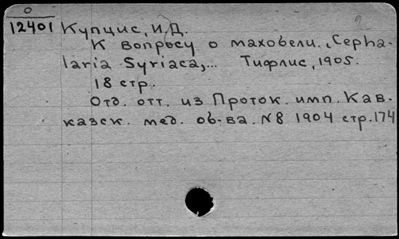 0
12401 Купцис, И.Д.
К вопросу о маховели. „Cepha-
laria Syriaca,... Тифлис, 1905.
18 стр.
Отд. отт. из Проток. имп. Кав.
казск. мед. об-ва. N8 1904 стр. 174